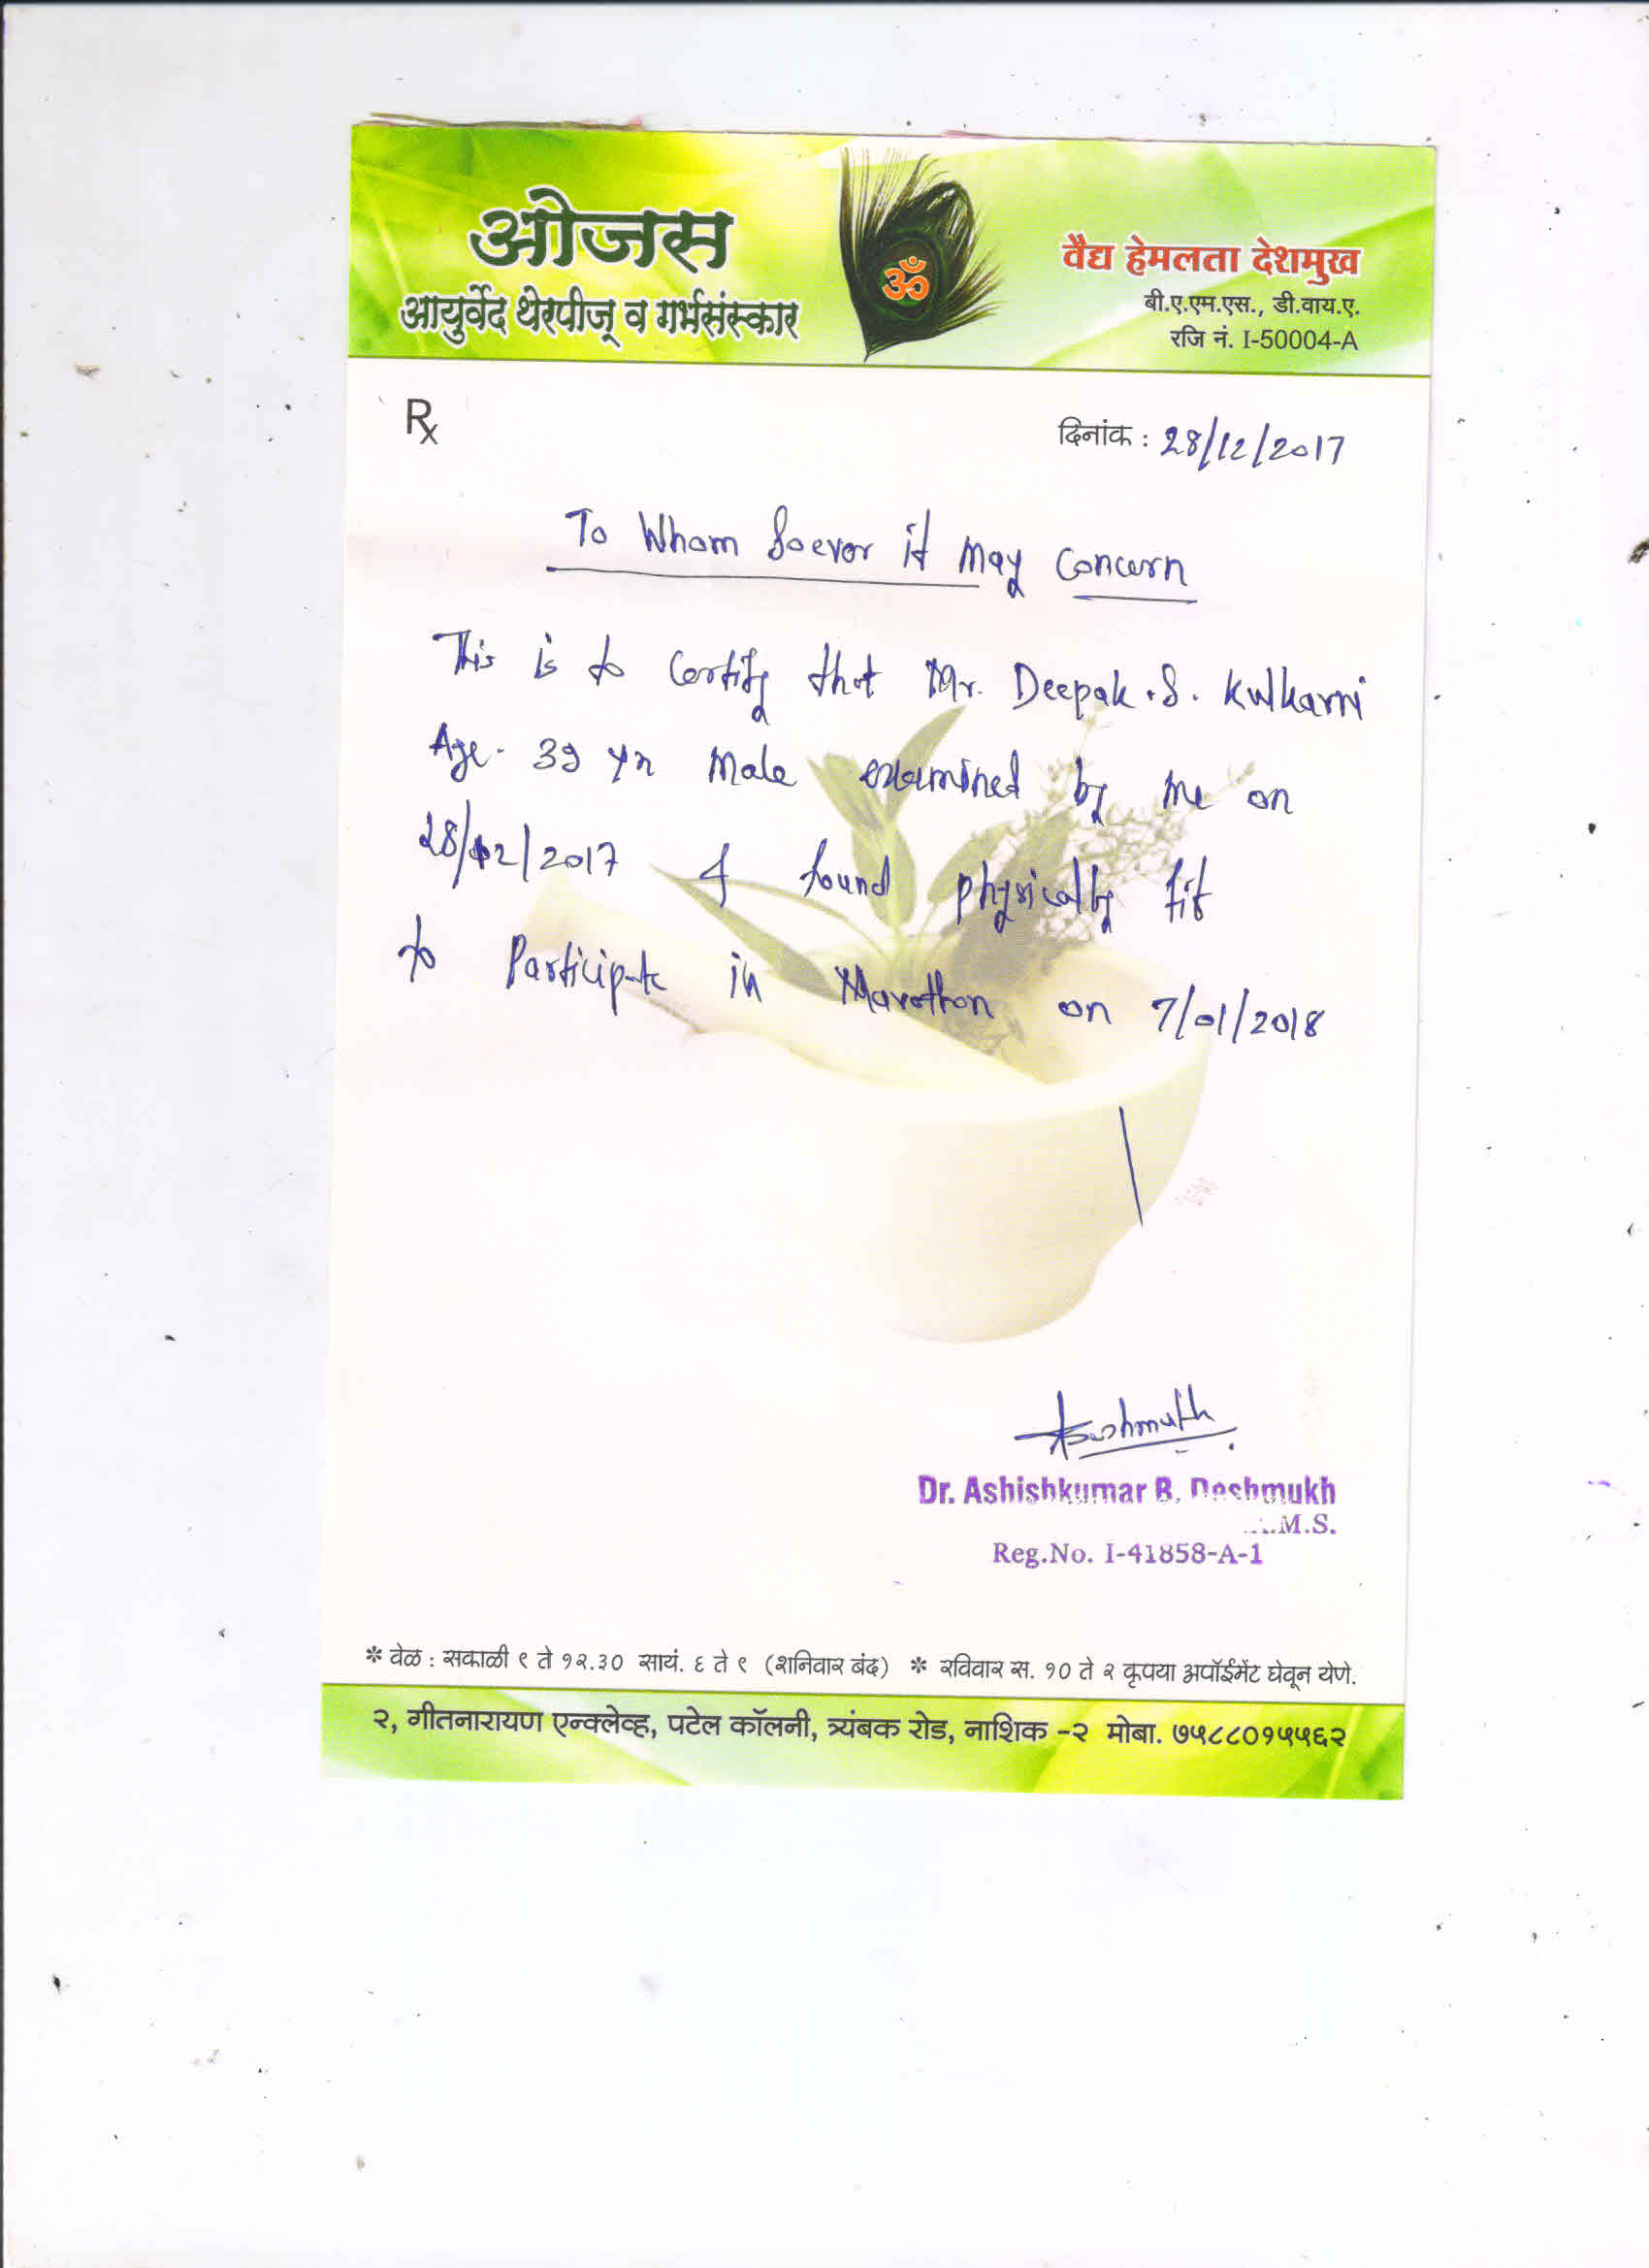 ओजस
आयुर्वेद थेरपीज् व गर्भसंस्कार
ॐ
वैद्य हेमलता देशमुख
बी.ए.एम.एस., डी.वाय.ए.
रजि नं. I-50004-A
Rx
दिनांक : 28/12/2017
To Whom Soever it May Concern
This is to Certify that Mr. Deepak.S. Kulkarni
Age - 39 yrs Male examined by me on
28/12/2017 & found physically fit
to Participate in Marathon on 7/01/2018
Deshmukh
Dr. Ashishkumar B. Deshmukh
M.S.
Reg.No. I-41858-A-1
* वेळ : सकाळी ९ ते १२.३० सायं. ६ ते ९ (शनिवार बंद) * रविवार स. १० ते २ कृपया अपॉईमेंट घेवून येणे.
२, गीतनारायण एन्क्लेव्ह, पटेल कॉलनी, त्र्यंबक रोड, नाशिक -२ मोबा. ७५८८०१५५६२